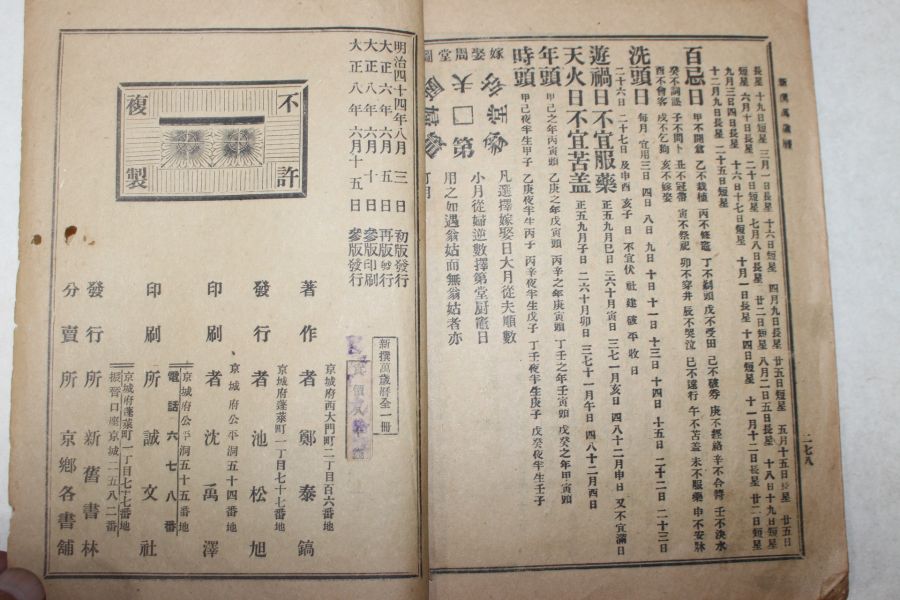 新撰萬歲曆
二七八
長星 十九日短星 三月一日長星 十六日短星 四月九日長星 廿五日短星 五月十五日長星 廿五日
短星 六月十日長星 二十日短星 七月八日長星 廿二日短星 八月二日五日長星 十八日十九日短星
九月三日四日長星 十六日十七日短星 十月一日長星 十四日短星 十一月十二日長星 廿二日短星
十二月九日長星 二十五日短星
百忌日 甲不開倉 乙不栽植 丙不修竈 丁不剃頭 戊不受田 己不破券 庚不經絡 辛不合醬 壬不決水
癸不詞訟 子不問卜 丑不冠帶 寅不祭祀 卯不穿井 辰不哭泣 巳不遠行 午不苫蓋 未不服藥 申不安牀
酉不會客 戌不乞狗 亥不嫁娶
洗頭日 每月 宜用三日 四日 八日 九日 十日 十一日 十三日 十四日 十五日 二十二日 二十三日
二十六日 二十七日 及申酉 亥子日 不宜伏 社 建 破 平 收日
遊禍日不宜服藥 正五九月巳日 二六十月寅日 三七一月亥日 四八十二月申日 又不宜滿日
天火日不宜苫盖 正五九月子日 二六十月卯日 三七十一月午日 四八十二月酉
年頭 甲己之年丙寅頭 乙庚之年戊寅頭 丙辛之年庚寅頭 丁壬之年壬寅頭 戊癸之年甲寅頭
時頭 甲己夜半生甲子 乙庚夜半生丙子 丙辛夜半生戊子 丁壬夜半生庚子 戊癸夜半生壬子
嫁娶周堂圖
夫
第
凡選擇嫁娶日大月從夫順數
小月從婦逆數擇第堂厨竈日
用之如遇翁姑而無翁姑者亦
可用
不許複製
明治四十四年八月三日 初版發行
大正六年六月五日 再版發行
大正八年六月十日 參版印刷
大正八年六月十五日 參版發行
新撰萬歲曆全一冊
京城府西大門町二丁目百六番地
著作者 鄭泰鎬
京城府蓬萊町一丁目七十七番地
發行者 池松旭
京城府公平洞五十四番地
印刷者 沈禹澤
京城府公平洞五十五番地
電話六七八番
印刷所 誠文社
京城府蓬萊町一丁目七七番地
振替口座京城二五八二番
發行所 新舊書林
分賣所 京鄉各書舖